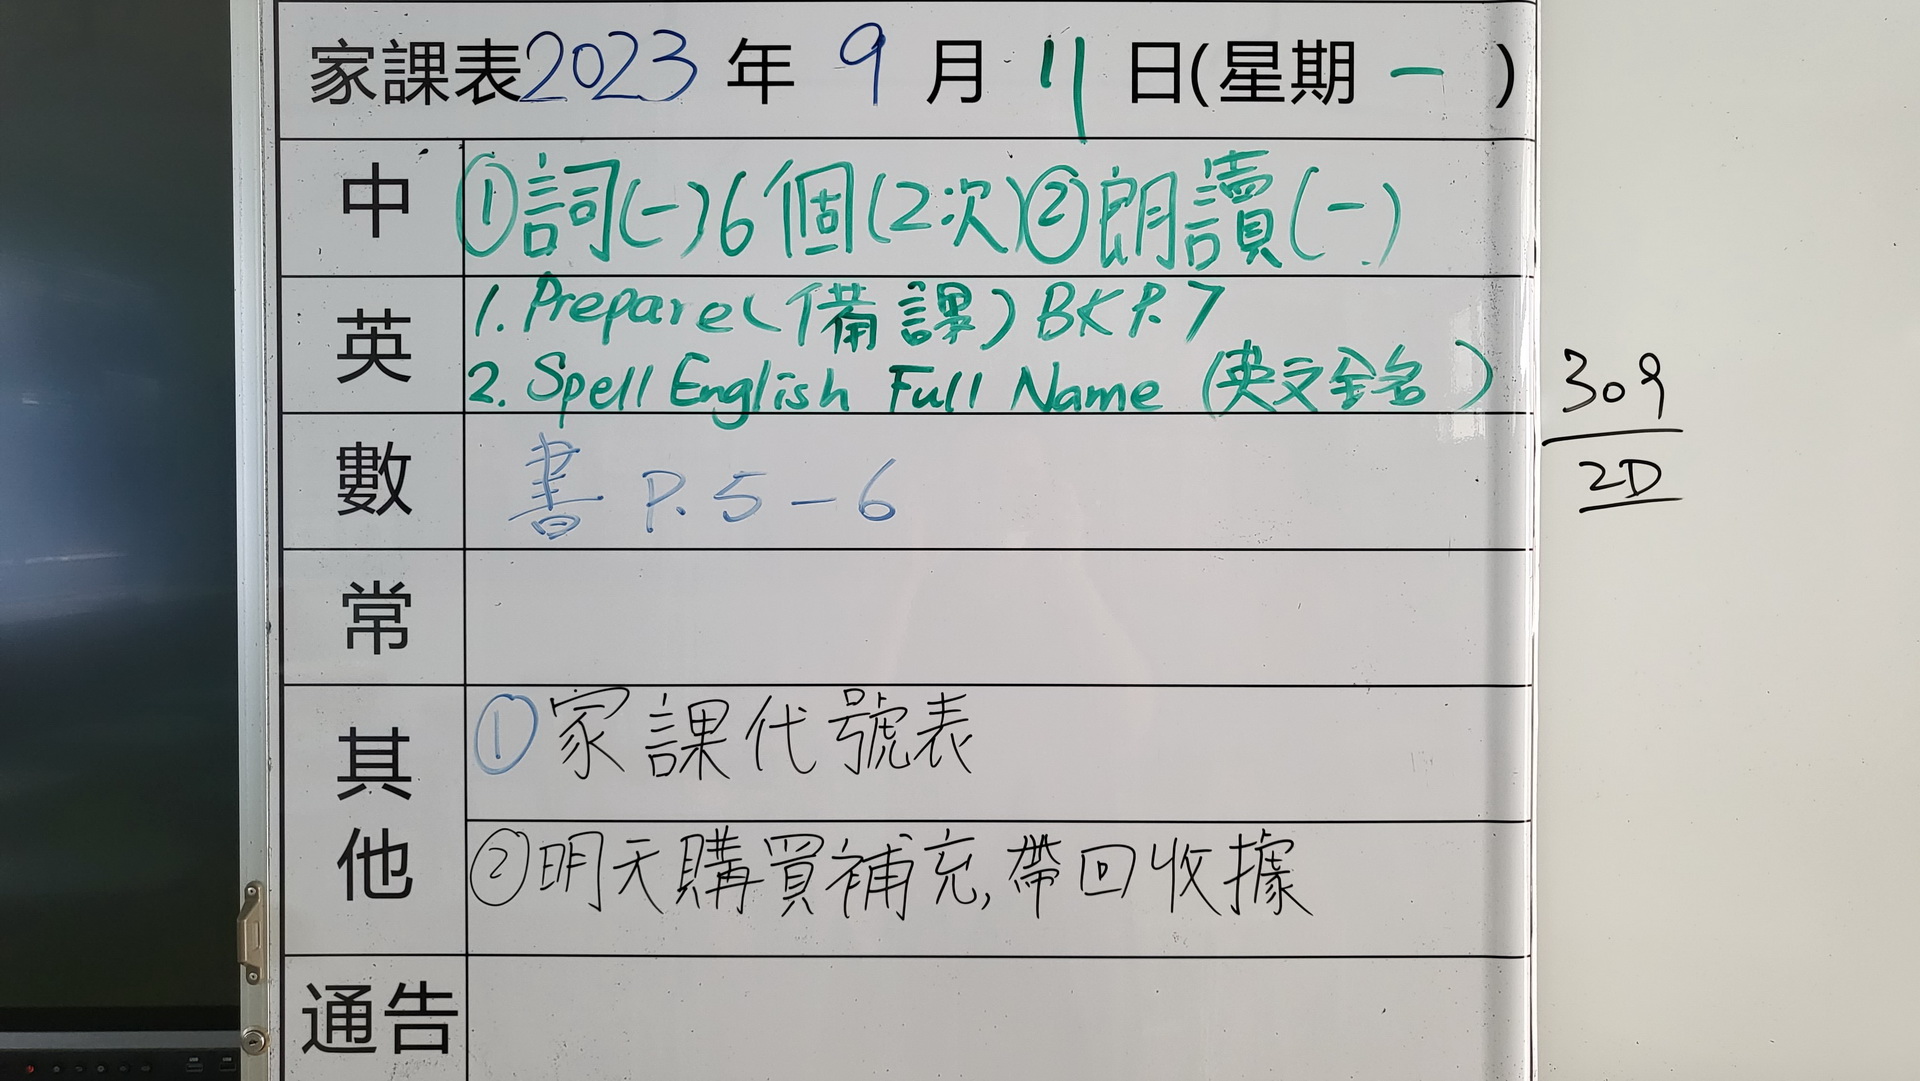 家課表2023年9月11日(星期一)
中 ①詞(一)6個(2次)②朗讀(一)
英 1. Prepare(備課)BK P.7
2. Spell English Full Name (英文全名)
數 書 P. 5-6
常
其他 ①家課代號表
②明天購買補充,帶回收據
通告
309
2D